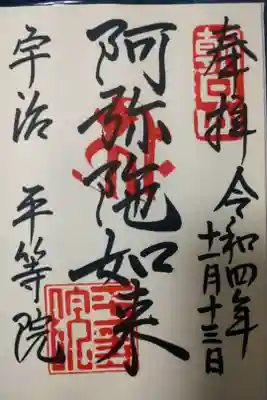 奉拝 令和四年
十一月十三日
阿弥陀如来
宇治 平等院
朝日山